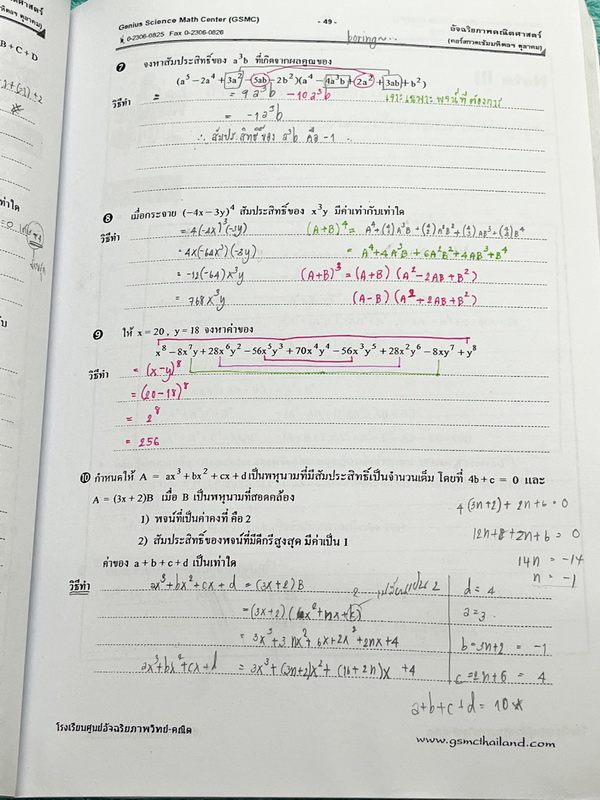 Genius Science Math Center (GSMC)
- 49 -
อัจฉริยภาพคณิตศาสตร์
0-2306-0825 Fax 0-2306-0826
boring~~
(คอร์สภาวะข้มบทิตลฯ ตุลาคม)
B + C + D
❼ จงหาสัมประสิทธิ์ของ a³b ที่เกิดจากผลคูณของ
(a⁵ − 2a⁴ + 3a² − 5ab − 2b²)(a⁴ − 4a³b + 2a² + 3ab + b²)
วิธีทำ = = 9a³b − 10a³b เจาะเฉพาะ พจน์ที่ต้องการ
= −1a³b
∴ สัมประสิทธิ์ของ a³b คือ −1
❽ เมื่อกระจาย (−4x − 3y)⁴ สัมประสิทธิ์ของ x³y มีค่าเท่ากับเท่าใด
วิธีทำ = 4(−4x)³(−3y) (A+B)⁴ = A⁴+(4 1)A³B+(4 2)A²B²+(4 3)AB³+(4 4)B⁴
= 4×(−64x³)(−3y) = A⁴+4A³B+6A²B²+4AB³+B⁴
= −12(−64)x³y (A+B)³ = (A+B)(A²−2AB+B²)
= 768x³y (A−B)(A²+2AB+B²)
❾ ให้ x = 20 , y = 18 จงหาค่าของ
x⁸ − 8x⁷y + 28x⁶y² − 56x⁵y³ + 70x⁴y⁴ − 56x³y⁵ + 28x²y⁶ − 8xy⁷ + y⁸
วิธีทำ = (x−y)⁸
= (20−18)⁸
= 2⁸
= 256
❿ กำหนดให้ A = ax³ + bx² + cx + d เป็นพหุนามที่มีสัมประสิทธิ์เป็นจำนวนเต็ม โดยที่ 4b + c = 0 และ
A = (3x + 2)B เมื่อ B เป็นพหุนามที่สอดคล้อง
4(3n+2) + 2n+6 = 0
1) พจน์ที่เป็นค่าคงที่ คือ 2
12n+8+2n+6 = 0
2) สัมประสิทธิ์ของพจน์ที่มีดีกรีสูงสุด มีค่าเป็น 1
14n = −14
ค่าของ a + b + c + d เป็นเท่าใด
n = −1
วิธีทำ ax³+bx²+cx+d = (3x+2)B
2
d = 4
a = 3
= 3x³+3nx²+6x+2x²+2nx+4
b = 3n+2 = −1
ax³+bx²+cx+d = 3x³+(3n+2)x²+(6+2n)x +4
c = 2n+6 = 4
a+b+c+d = 10
โรงเรียนศูนย์อัจฉริยภาพวิทย์-คณิต
www.gsmcthailand.com